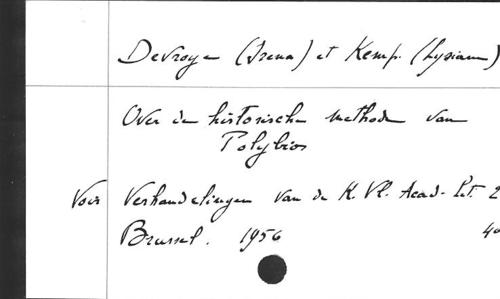 Devroye (Irena) et Kemp. (Lysiane)
Over de historische methode van
Polybios
Voir Verhandelingen van de K. Vl. Acad. Let. 2
Brussel. 1956 4º